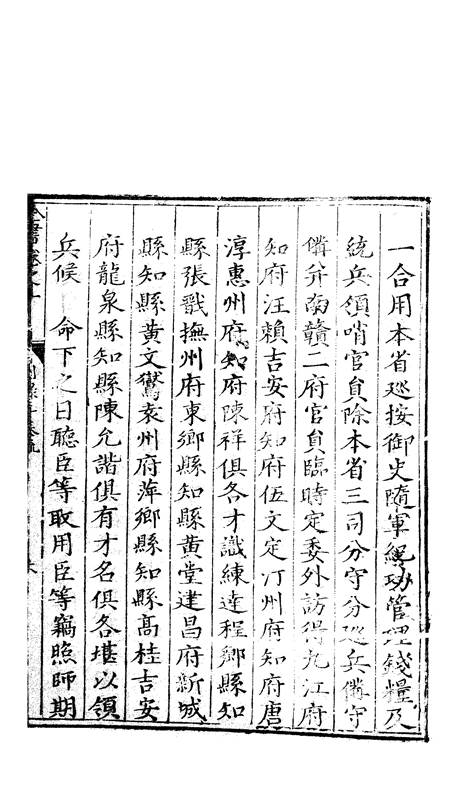 一合用本省巡按御史隨軍紀功管理錢糧及
統兵領哨官員除本省三司分守分巡兵備守
備并南贛二府官員臨時定委外訪得九江府
知府汪賴吉安府知府伍文定汀州府知府唐
淳惠州府知府陳祥俱各才識練達程鄉縣知
縣張戩撫州府東鄉縣知縣黃堂建昌府新城
縣知縣黃文鸑袁州府萍鄉縣知縣高桂吉安
府龍泉縣知縣陳允諧俱有才名俱各堪以領
兵候 命下之日聽臣等取用臣等竊照師期
全書卷之十